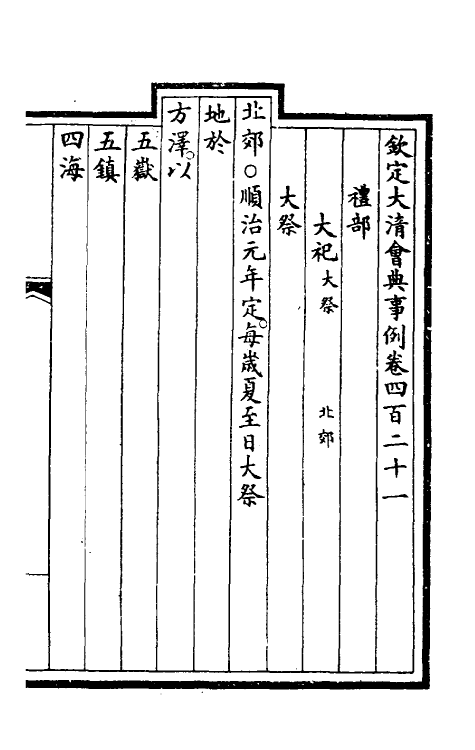 欽定大清會典事例卷四百二十一
禮部
大祀大祭 北郊
大祭
北郊○順治元年定。每歲夏至日大祭
地於
方澤。以
五嶽
五鎮
四海